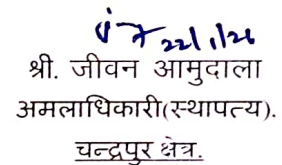 22/1/26
श्री. जीवन आमुदाला
अमलाधिकारी(स्थापत्य).
चन्द्रपुर क्षेत्र.